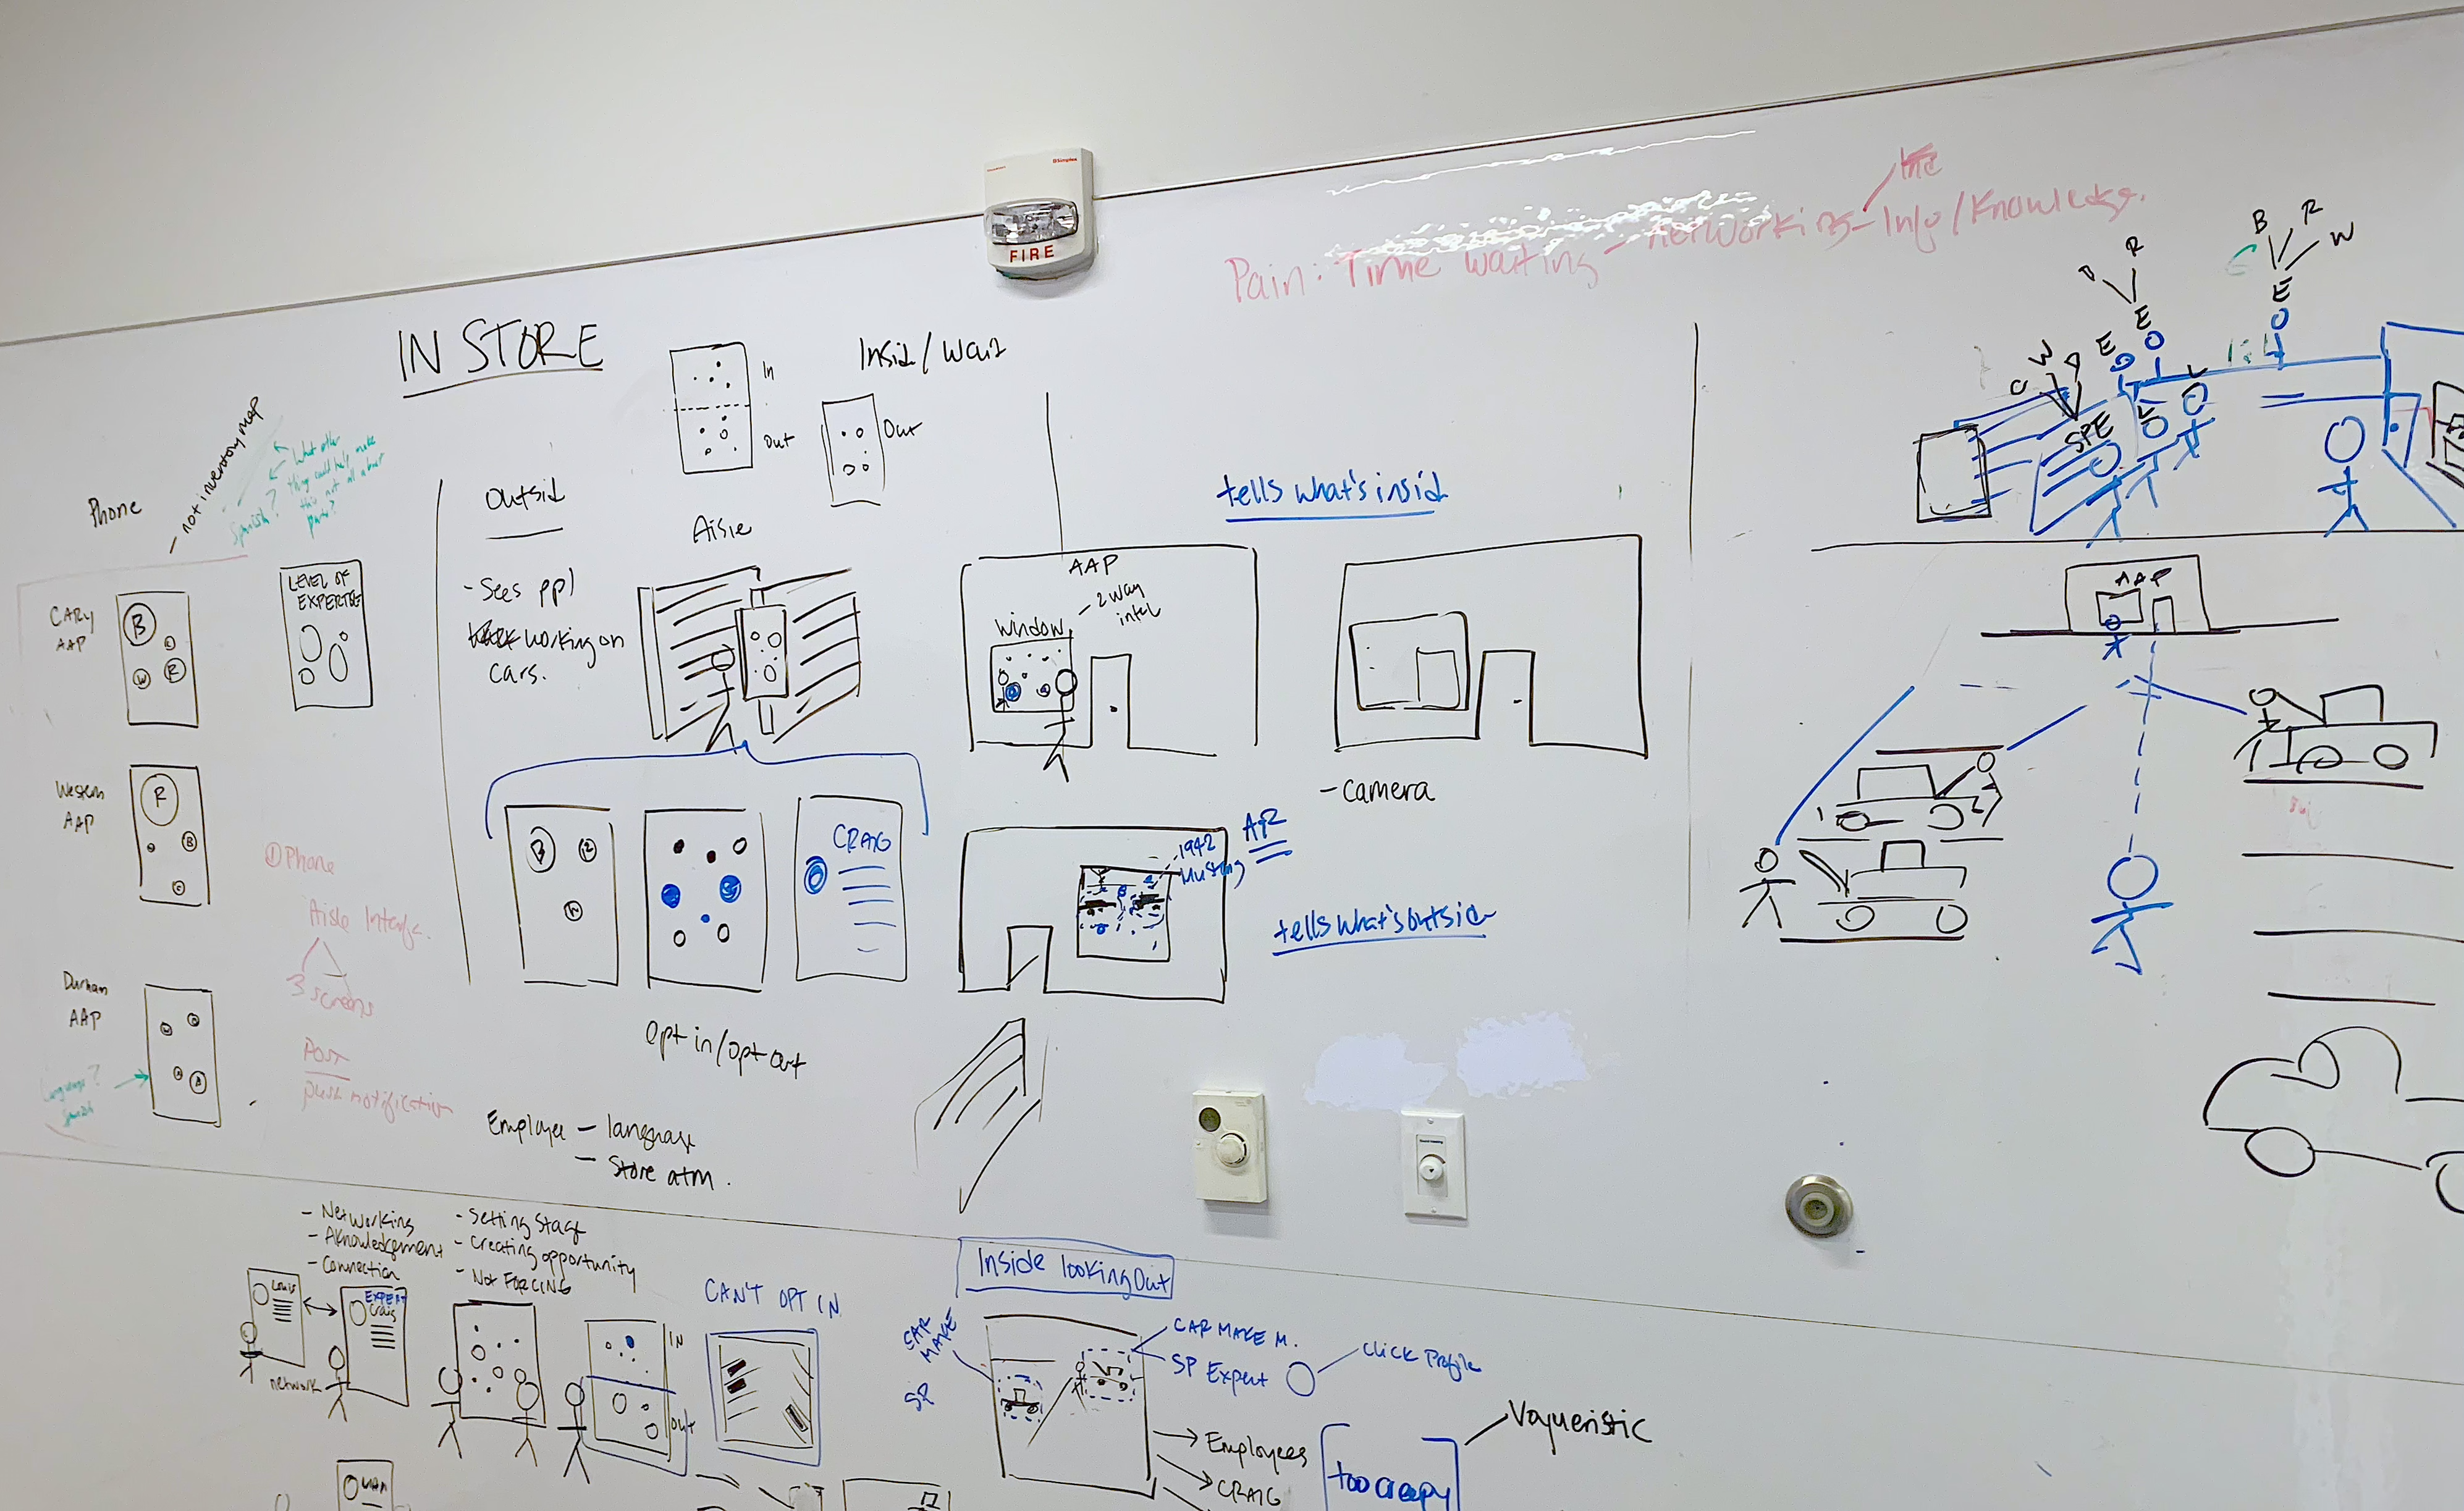 Simplex
FIRE
Pain: Time waiting - Networking - Info/Knowledge.
IN STORE
In
Out
Insid/Wait
Out
Phone
- not inventory map
Spanish?
What other
thing could help make
this not all about
parts?
LEVEL OF
EXPERTISE
CARY
AAP
B
W
R
Western
AAP
R
B
C
Durham
AAP
Language?
Spanish
① Phone
Aisle Interfac.
3 screens
POST
push notification
outsid
- Sees ppl
working on
cars.
Aisle
B
R
W
CRAIG
Opt in/opt out
Employee - language
- Store atm.
tells what's insid
AAP
- 2 way
intel
Window
- Camera
1942
Mustang
AR
tells what's outsid
B
R
W
E
R
E
E
W
C
SPE
L
L
AAP
- Networking
- Aknowledgement
- Connection
- Setting Stage
- Creating opportunity
- Not FORCING
Louis
EXPERT
Craig
network
IN
OUT
CAN'T OPT IN
Inside looking Out
CAR
MAKE
SP
CAR MAKE M.
SP Expert
click Profile
Employees
CRAIG
too creepy
Voyueristic